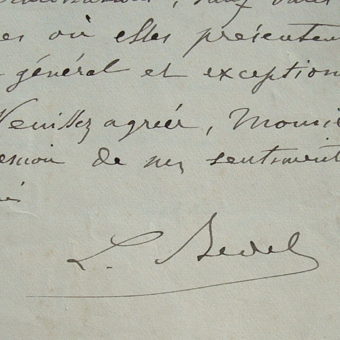 es où elles présenten
général et exception
Veuillez agréer, Monsi
ession de mes sentiment
L. Bedel